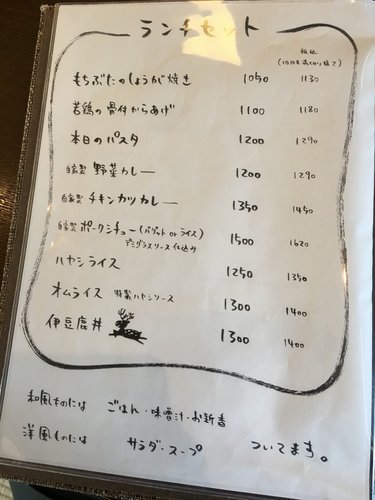 ランチセット
税込
(10円未満切り捨て)
もちぶたのしょうが焼き 1050 1130
若鶏の骨付からあげ 1100 1180
本日のパスタ 1200 1290
自家製 野菜カレー 1200 1290
自家製 チキンカツカレー 1350 1450
自家製 ポークシチュー(バゲット or ライス) 1500 1620
デミグラスソース仕込み
ハヤシライス 1250 1350
オムライス 特製ハヤシソース 1300 1400
伊豆鹿丼 1300 1400
和風ものには ごはん・味噌汁・お新香
洋風ものには サラダ・スープ ついてます。